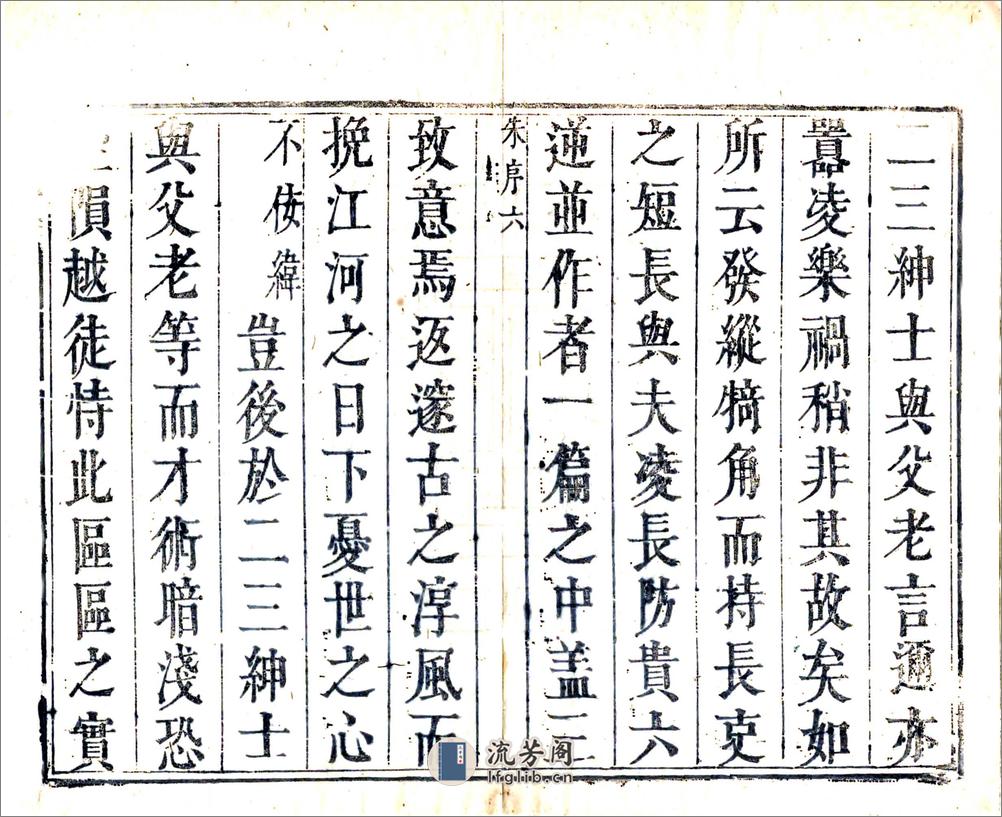 二三紳士與父老言邇亦
囂凌樂禍稍非其故矣如
所云發縱犄角而持長吏
之短長與夫凌長防貴六
逆並作者一篇之中盖三
朱序 六
致意焉返邃古之淳風而
挽江河之日下憂世之心
不佞緯豈後於二三紳士
與父老等而才術暗淺恐
隕越徒恃此區區之實
流芳阁
lfglib.cn